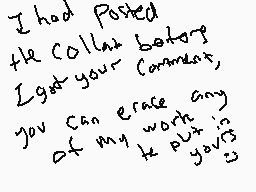 I had Posted
the collab before
I got your comment,
you can erase any
of my work in
to put yours